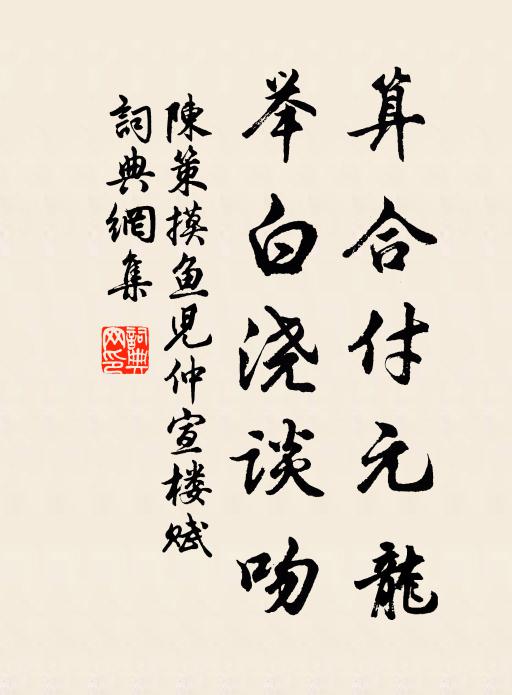 算合付元龍
举白浇谈吻
陳策摸鱼児仲宣楼赋
詞典網集
詞典网印